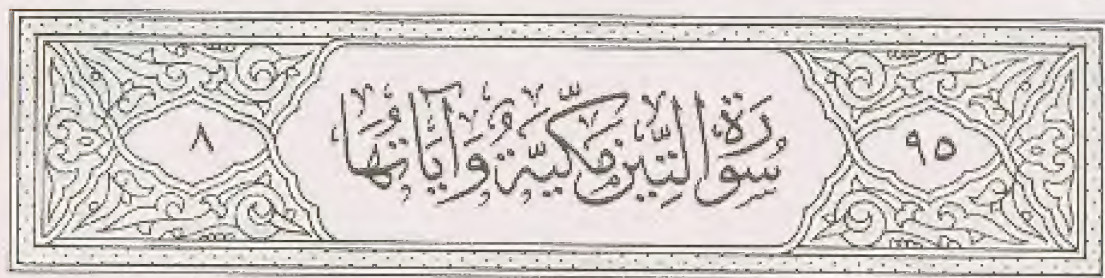 ٩٥
سُورَةُ التِّينِ مَكِّيَّةٌ وَآيَاتُهَا
٨